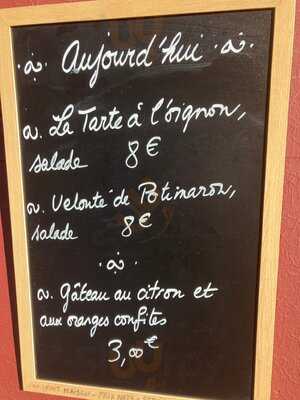 Aujourd'hui
La Tarte à l'oignon,
salade 8€
Velouté de Potimaron,
salade 8€
Gâteau au citron et
aux oranges confites
3,00€